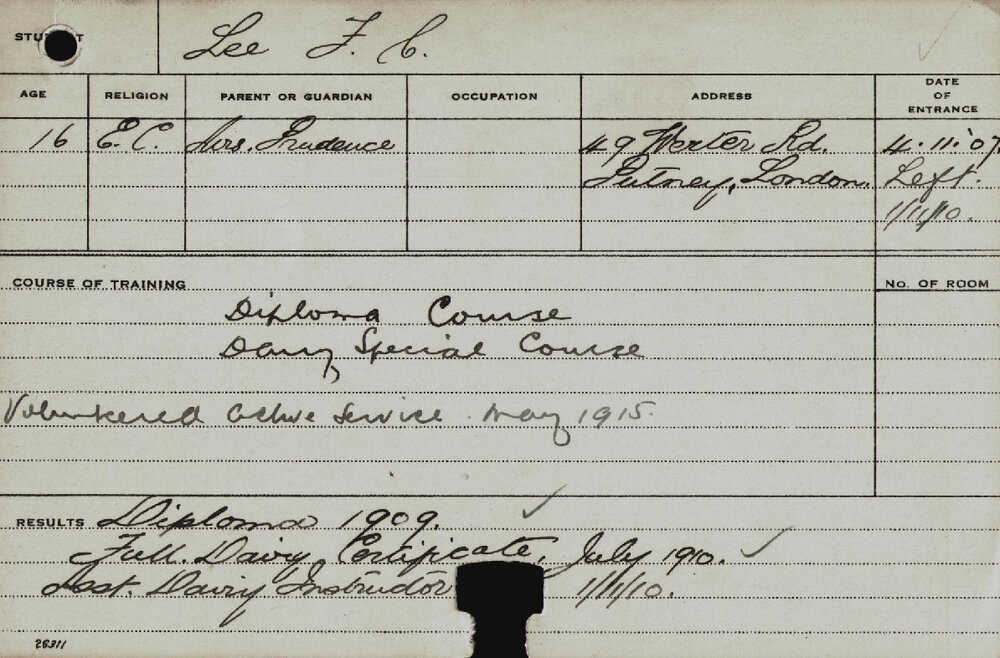 STUDENT Lee F. C.
AGE RELIGION PARENT OR GUARDIAN OCCUPATION ADDRESS DATE OF ENTRANCE
16 E.C. Mrs. Prudence 49 Werter Rd. 4.11.07.
Putney, London. Left.
1/11/10.
COURSE OF TRAINING No. OF ROOM
Diploma Course
Dairy Special Course
Volunteered active service. May 1915.
RESULTS Diploma 1909.
Full Dairy Certificate, July 1910.
Asst. Dairy Instructor 1/11/10.
26311